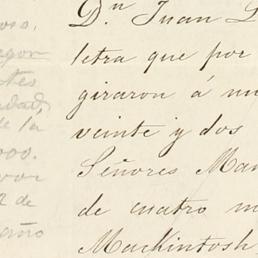 Dn Juan L
letra que por
giraron á mi
veinte y dos
Señores Man
de cuatro m
Mackintosh
de la
000.
2 de